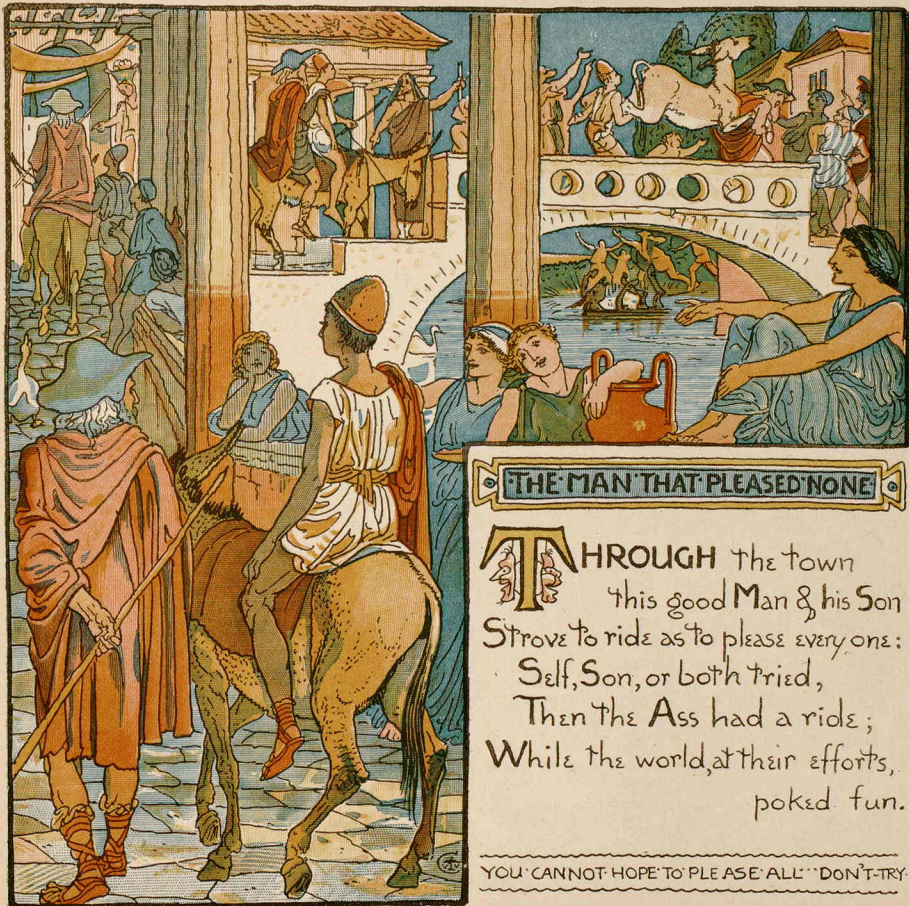 THE·MAN·THAT·PLEASED·NONE
THROUGH the town
this good Man & his Son
Strove to ride as to please everyone:
Self, Son, or both tried,
Then the Ass had a ride;
While the world, at their efforts,
poked fun.
YOU·CANNOT·HOPE·TO·PLEASE·ALL··DON'T·TRY·